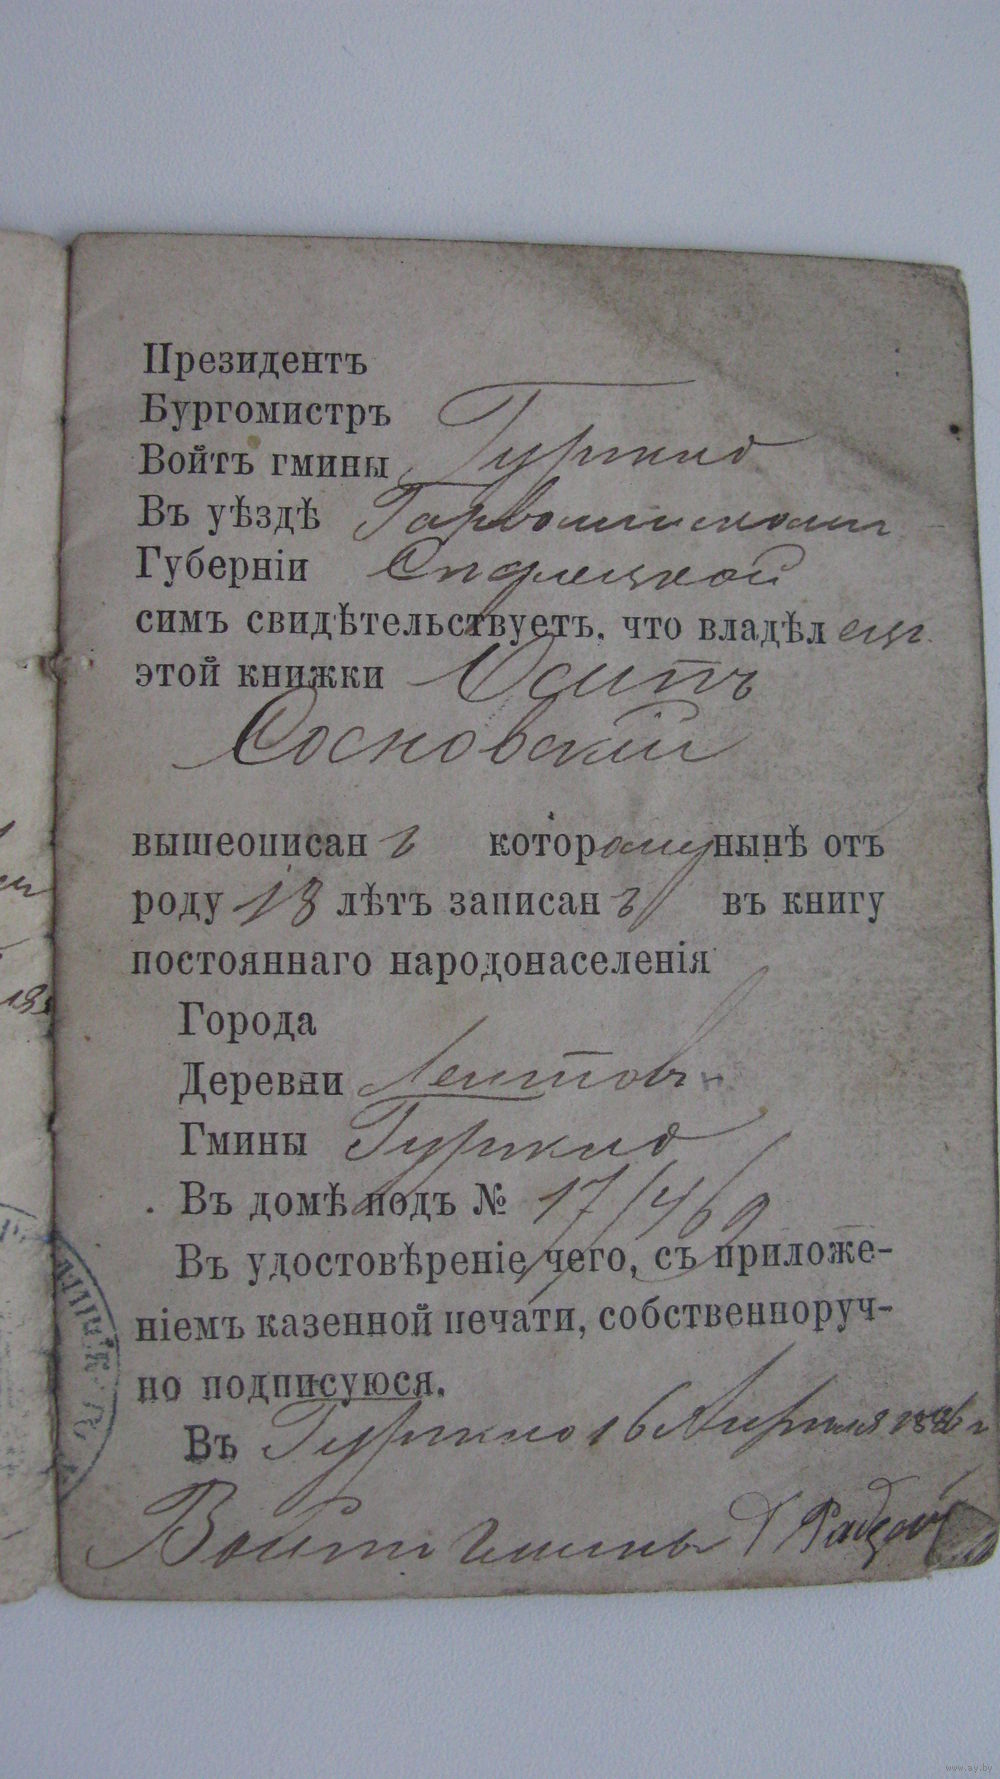 Президентъ
Бургомистръ
Войтъ гмины Гуржно
Въ уѣздѣ Гарволинскомъ
Губерніи Сѣдлецкой
симъ свидѣтельствуетъ, что владѣлецъ
этой книжки Осипъ
Сосновскій
вышеописанъ которому нынѣ отъ
роду 18 лѣтъ записанъ въ книгу
постояннаго народонаселенія
Города
Деревни
Гмины Гуржно
Въ домѣ подъ № 17/469
Въ удостовѣреніе чего, съ приложе-
ніемъ казенной печати, собственноруч-
но подписуюся.
Въ Гуржно 16 Апрѣля
Войтъ Гмины
www.ay.by